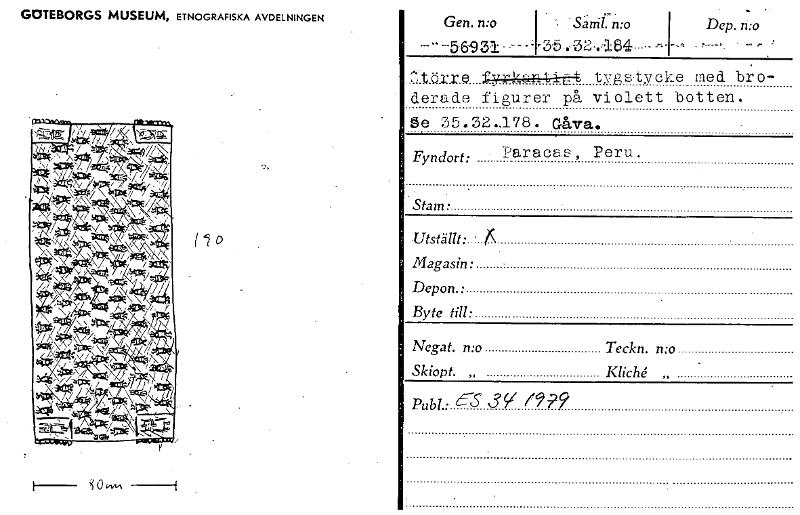 GÖTEBORGS MUSEUM, ETNOGRAFISKA AVDELNINGEN
190
80cm
Gen. n:o Saml. n:o Dep. n:o
56931 35.32.184
Större fyrkantigt tygstycke med bro-
derade figurer på violett botten.
Se 35.32.178. Gåva.
Fyndort: Paracas, Peru.
Stam:
Utställt: X
Magasin:
Depon.:
Byte till:
Negat. n:o Teckn. n:o
Skiopt. „ Kliché „
Publ.: ES 34 1979